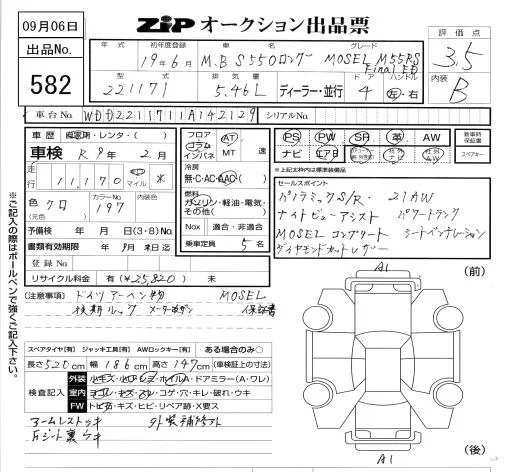 09月06日
ZiP オークション出品票
出品No.
582
年式 初年度登録 車名 グレード
19年6 M.B S550ロング MOSEL M55RS
Final ED
型式 排気量 ドア ハンドル
221171 5.46L ディーラー・並行 4 左・右
評価点
3.5
内装
B
車台No. WDD2211711A142129 シリアルNo.
車歴 自家用・レンタ( )
車検 R9年2月
走行 11,170 マイル
色 クロ カラーNo. 197 内装色
(元色)
予備検 年 月 日(3・8)No.
書類有効期限 年 9月 末日 迄
登録No.
リサイクル料金 有(¥25,820) 未
フロア
コラム
インパネ
AT
MT 速
冷房
無・C・AC・AAC・( )
燃料
ガソリン・軽油・電気・
その他( )
Nox 適合・非適合
乗車定員 5名
PS PW SR 革 AW
ナビ エアB
社外ナビ 社外AW
新車時保証書
スペアキー
*上記太枠内は標準装備品
セールスポイント
パノラミックS/R・21AW
ナイトビューアシスト パワートランク
MOSEL コンプリート シートベンチレーション
ダイヤモンドカットレザー
[注意事項] MOSEL
保証書
スペアタイヤ[有] ジャッキ工具[有] AWロックキー[有] ある場合のみ○
長さ520cm 幅186cm 高さ147cm (車検証上の寸法)
検査記入
外装 ルキズ・ルロアシミ・ホイルA・ドアミラー(A・ワレ)
室内 ヨゴレ・キズ・スレ・コゲ・穴・キレ・破れ・ウキ
FW トビ石・キズ・ヒビ・リペア跡・X要ス
アームレストキ
Fシート裏ウキ
A1
(前)
(後)
A1
※ご記入の際はボールペンで強くご記入下さい。